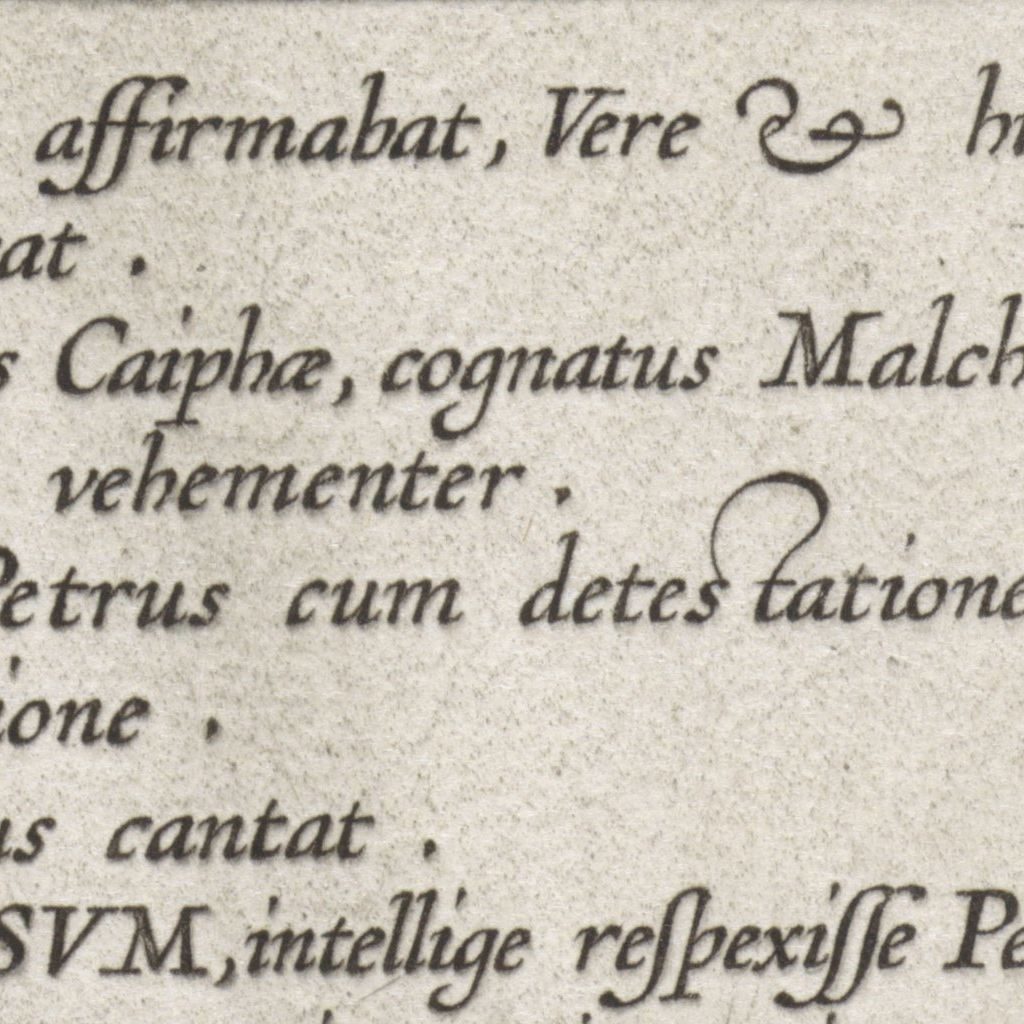 affirmabat, Vere & hu
at .
s Caiphæ, cognatus Malch
vehementer .
Petrus cum detestatione
ione .
us cantat .
SVM, intellige reſpexiſſe Pe